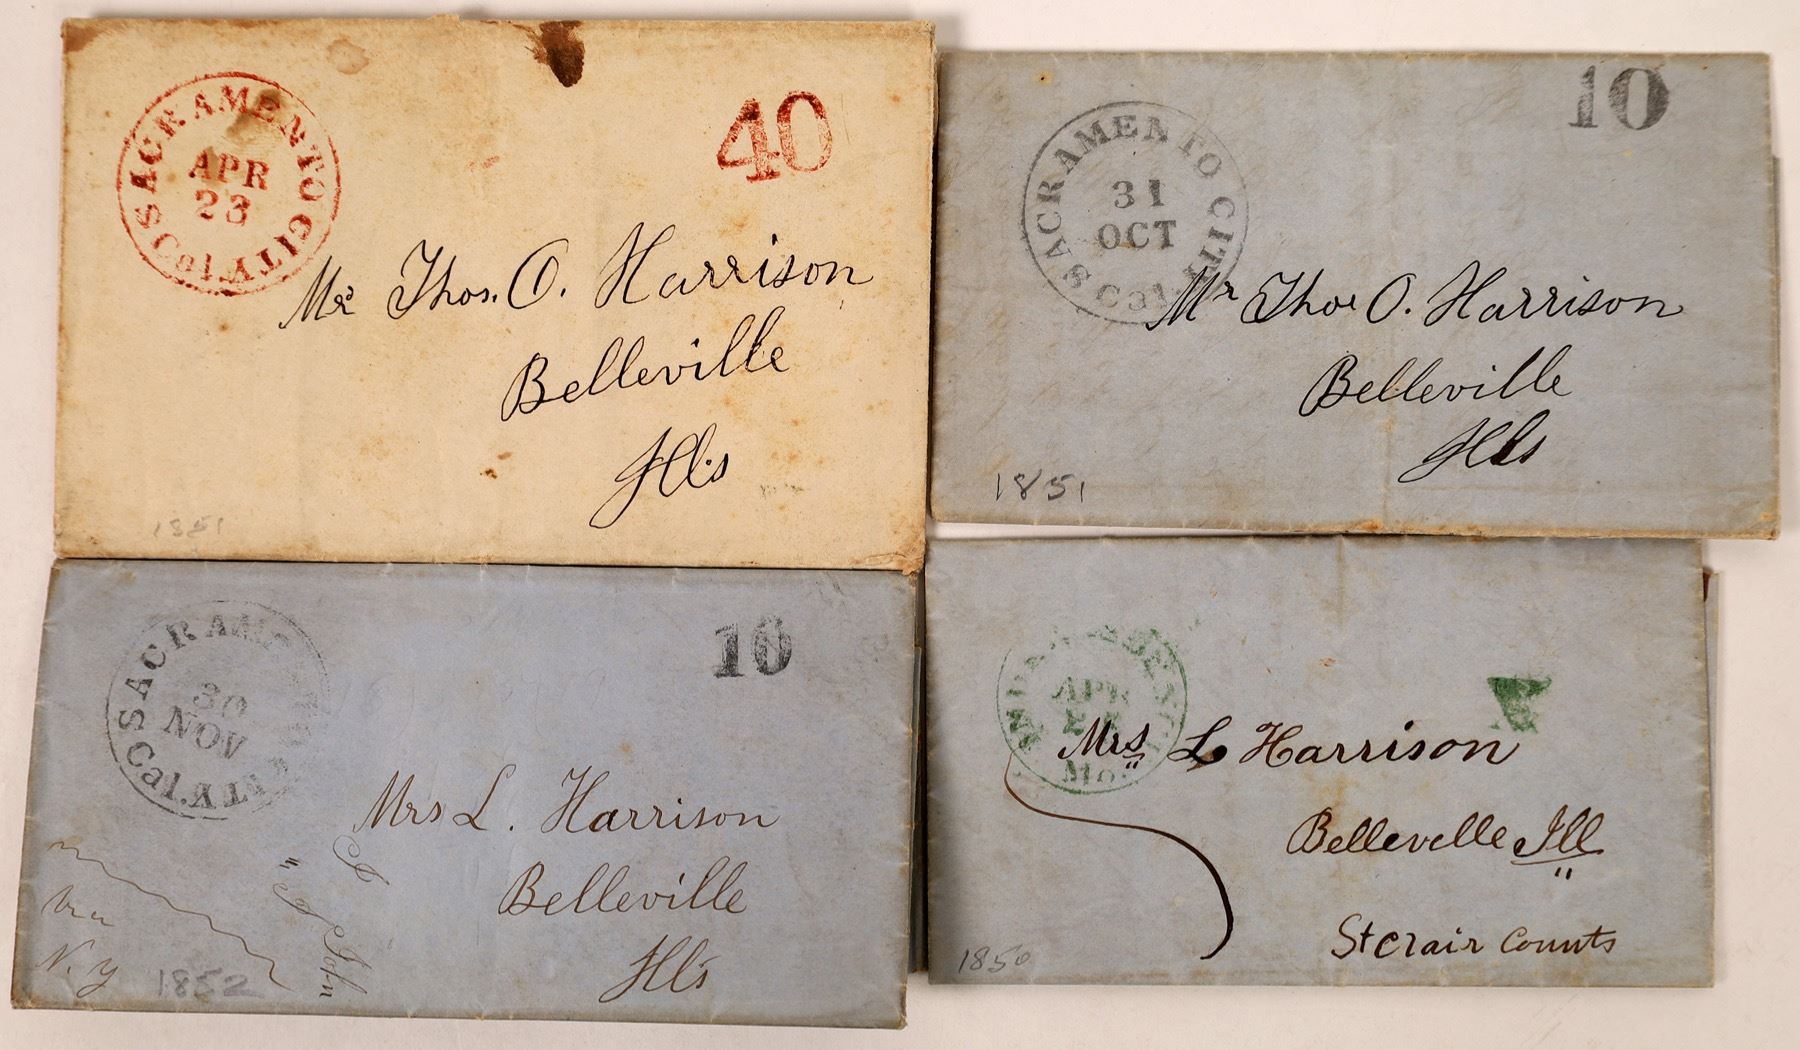 SACRAMENTO CITY Cal.
APR
23
40
Mr Thos. O. Harrison
Belleville
Ills
1851
SACRAMENTO CITY Cal.
31
OCT
10
Mr Thos O. Harrison
Belleville
Ills
1851
SACRAMENTO CITY Cal.
30
NOV
10
Mrs L. Harrison
Belleville
Ills
via
N.Y
1852
John
APR
Mo.
Mrs L Harrison
Belleville Ill
St Clair County
1850